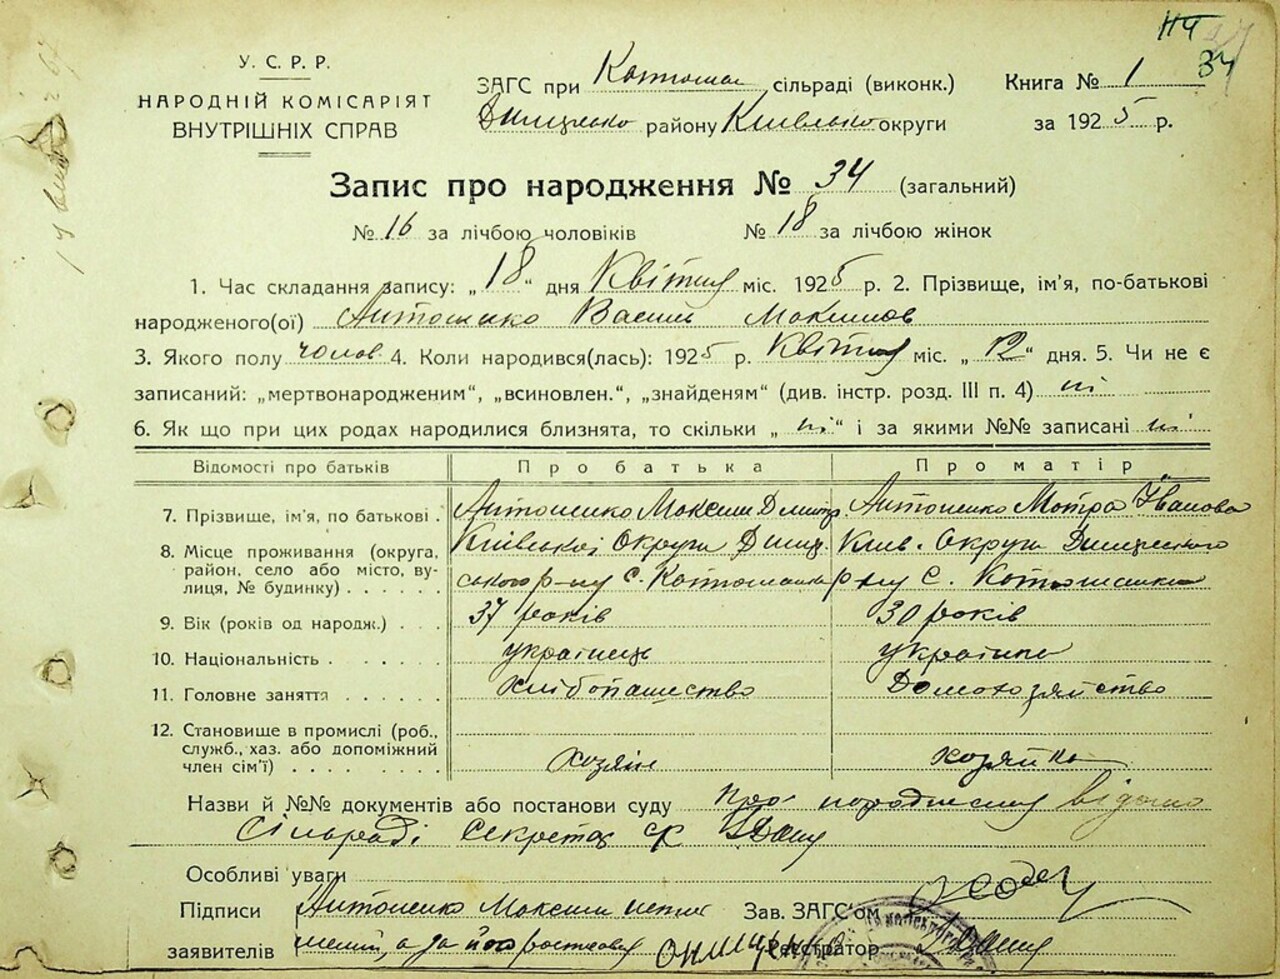 У. С. Р. Р.
НАРОДНІЙ КОМІСАРІЯТ
ВНУТРІШНІХ СПРАВ
ЗАГС при сільраді (виконк.)
району округи
Книга № 1
за 1925 р.
34
Запис про народження № 34 (загальний)
№ 16 за лічбою чоловіків № 18 за лічбою жінок
1. Час складання запису: „18“ дня Квітня міс. 1925 р. 2. Прізвище, ім'я, по-батькові
народженого(ої) Антоненко Василь Максимов
3. Якого полу чолов. 4. Коли народився(лась): 1925 р. Квітня міс. „12“ дня. 5. Чи не є
записаний: „мертвонародженим“, „всиновлен.“, „знайденям“ (див. інстр. розд. III п. 4) ні
6. Як що при цих родах народилися близнята, то скільки „ні“ і за якими №№ записані ні
Відомості про батьків Про батька Про матір
7. Прізвище, ім'я, по батькові . Антоненко Максим Дмитр. Антоненко Мотра Іванова
8. Місце проживання (округа, Київської Округи Київ. Округи
район, село або місто, ву- р-ну С. р-ну С.
лиця, № будинку) . . . . . .
9. Вік (років од народж.) . . . 37 років 30 років
10. Національність . . . . . українець українка
11. Головне заняття . . . . . хлібопашество Домохозяйство
12. Становище в промислі (роб.,
служб., хаз. або допоміжний
член сім'ї) . . . . . . . . хозяін хозяйка
Назви й №№ документів або постанови суду про народження відомо
Сільраді Секретар
Особливі уваги
Підписи Антоненко Максим Зав. ЗАГС'ом
заявителів а за його Реєстратор